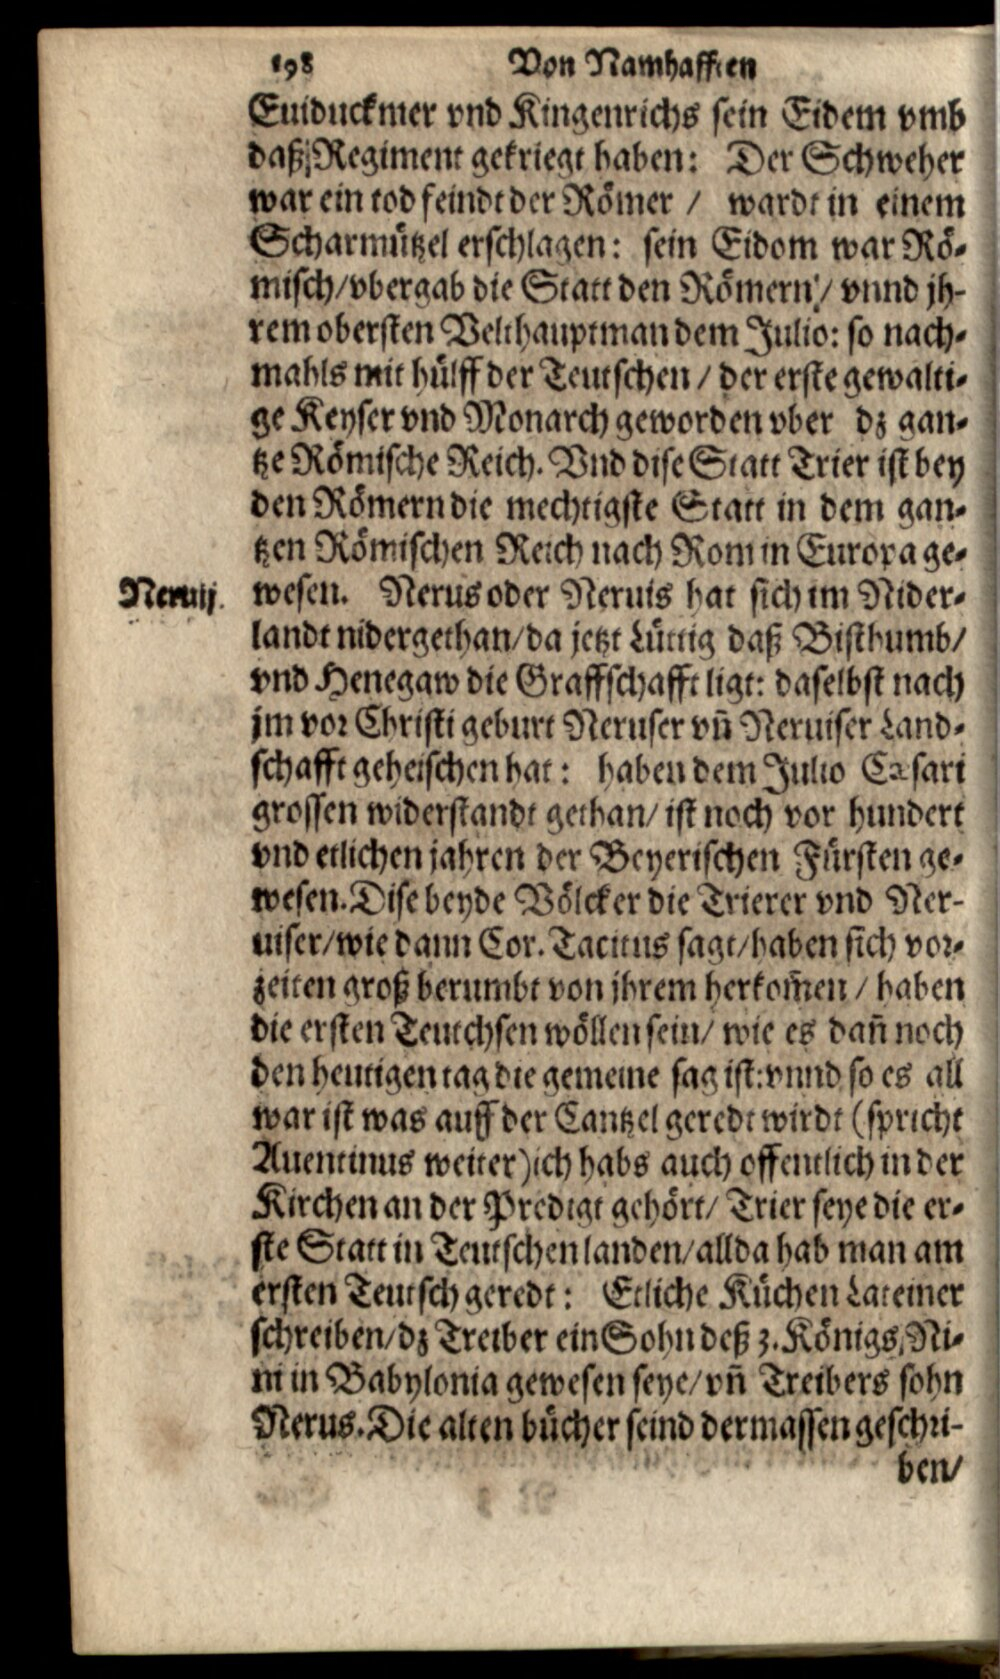 198 Von Namhafften
Euiduckmer vnd Kingenrichs sein Eidem vmb
daß Regiment gekriegt haben: Der Schweher
war ein todfeindt der Römer / wardt in einem
Scharmützel erschlagen: sein Eidom war Rö-
misch/vbergab die Statt den Römern / vnnd jh-
rem obersten Velthauptman dem Julio: so nach-
mahls mit hülff der Teutschen / der erste gewalti-
ge Keyser vnd Monarch geworden vber dz gan-
tze Römische Reich. Vnd dise Statt Trier ist bey
den Römern die mechtigste Statt in dem gan-
tzen Römischen Reich nach Rom in Europa ge-
Neruij. wesen. Nerus oder Neruis hat sich im Nider-
landt nidergethan/da jetzt Lüttig daß Bisthumb/
vnd Henegaw die Graffschafft ligt: daselbst nach
jm vor Christi geburt Neruser vn̄ Neruiser Land-
schafft geheischen hat: haben dem Julio Cæsari
grossen widerstandt gethan/ ist noch vor hundert
vnd etlichen jahren der Beyerischen Fürsten ge-
wesen. Dise beyde Völcker die Trierer vnd Ner-
uiser/wie dann Cor. Tacitus sagt/haben sich vor-
zeiten groß berumbt von jhrem herkom̄en / haben
die ersten Teutchsen wöllen sein/ wie es dan̄ noch
den heutigen tag die gemeine sag ist: vnnd so es all
war ist was auff der Cantzel geredt wirdt (spricht
Auentinus weiter) ich habs auch offentlich in der
Kirchen an der Predigt gehört/ Trier seye die er-
ste Statt in Teutschen landen/allda hab man am
ersten Teutsch geredt: Etliche Küchen Lateiner
schreiben/dz Treiber ein Sohn deß 3. Königs, Ni-
ni in Babylonia gewesen seye/vn̄ Treibers sohn
Nerus. Die alten bücher seind dermassen geschri-
ben/